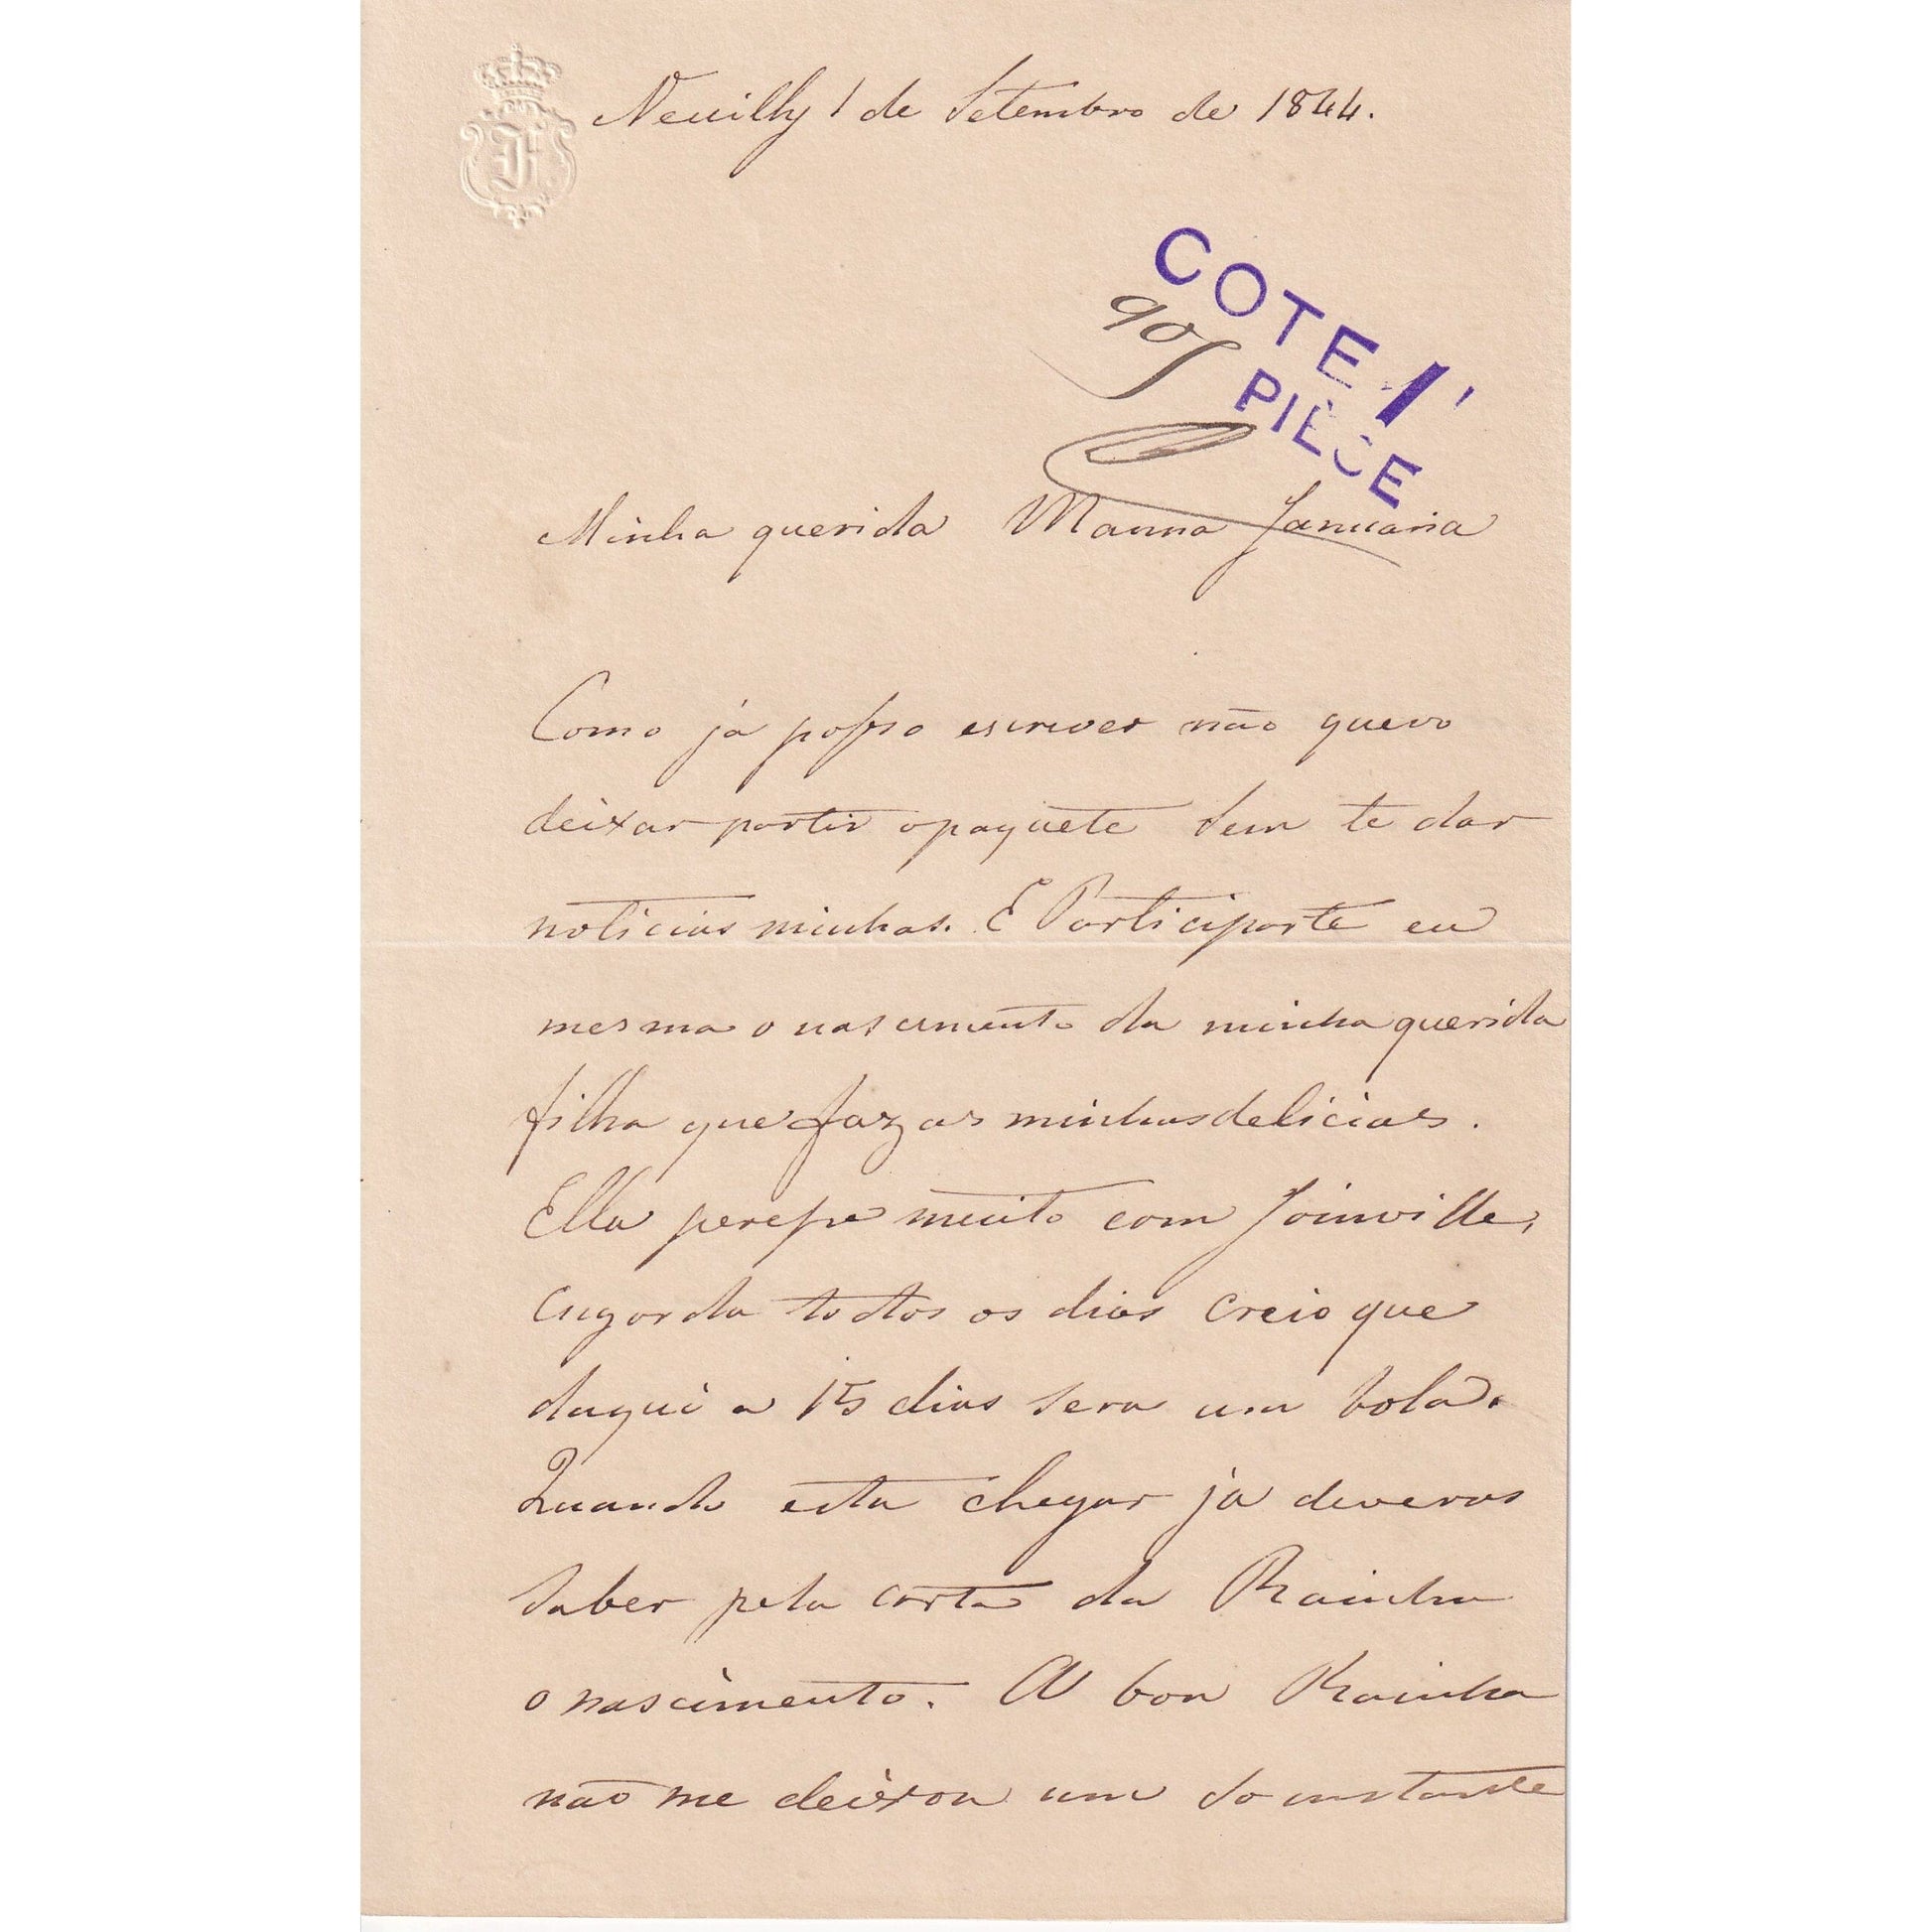 Neuilly 1 de Setembro de 1844.
COTE 1
905
PIÈCE
Minha querida Manna Januaria
Como já posso escrever não quero
deixar partir o paquete sem te dar
noticias minhas. E Participarte eu
mesma o nascimento da minha querida
filha que faz as minhas delicias.
Ella peresse muito com Joinville,
engorda todos os dias creio que
daqui a 15 dias sera um bola.
Quando esta chegar já deveras
saber pela carta da Rainha
o nascimento. A boa Rainha
não me deixou um so instante